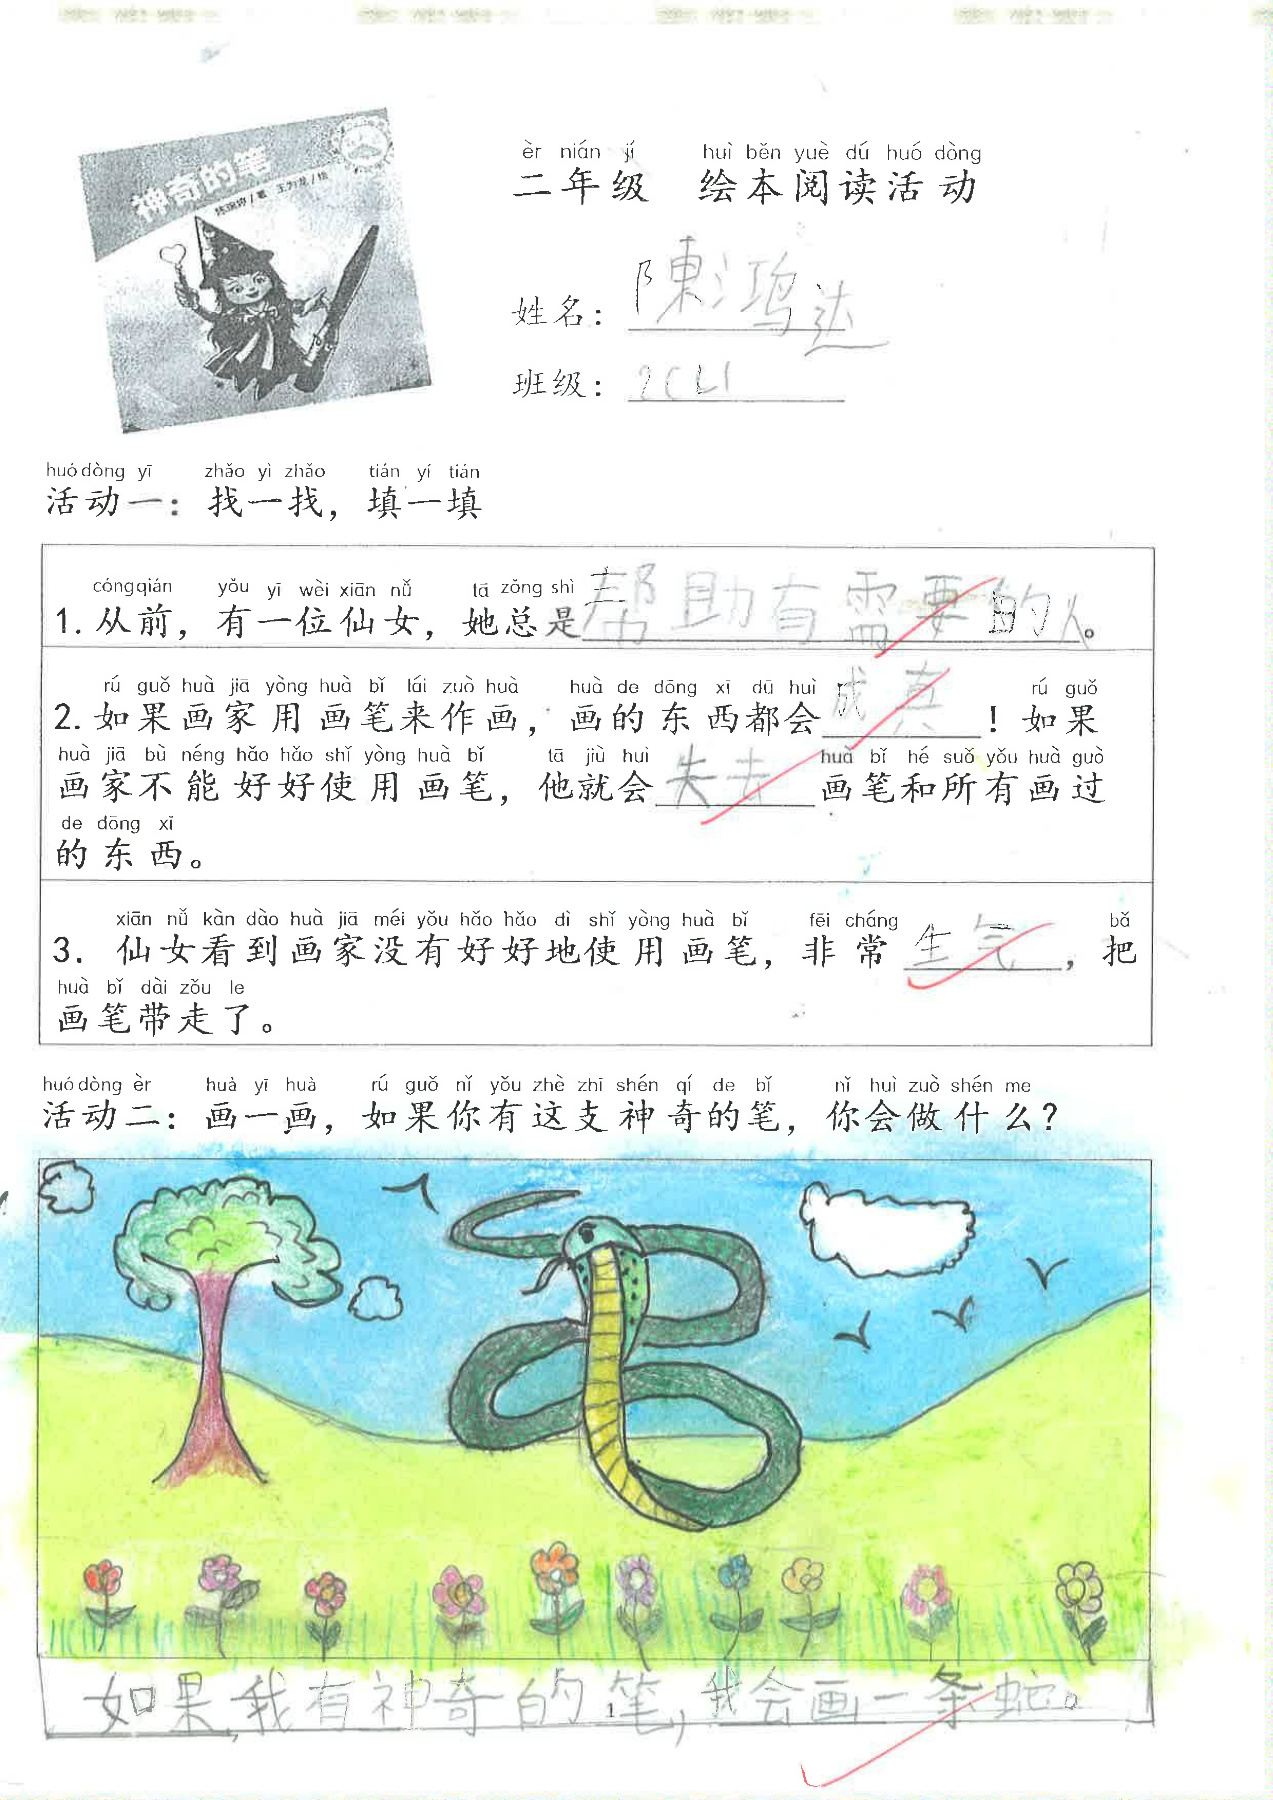 神奇的笔
陈琬婷/著 王万龙/绘
èr nián jí huì běn yuè dú huó dòng
二年级 绘本阅读活动
姓名：陳鸿达
班级：2CL1
huó dòng yī zhǎo yì zhǎo tián yí tián
活动一：找一找，填一填
cóngqián yǒu yī wèi xiān nǚ tā zǒng shì
1. 从前，有一位仙女，她总是帮助有需要的人。
rú guǒ huà jiā yòng huà bǐ lái zuò huà huà de dōng xī dū huì rú guǒ
2. 如果画家用画笔来作画，画的东西都会成真！如果
huà jiā bù néng hǎo hǎo shǐ yòng huà bǐ tā jiù huì huà bǐ hé suǒ yǒu huà guò
画家不能好好使用画笔，他就会失去画笔和所有画过
de dōng xī
的东西。
xiān nǚ kàn dào huà jiā méi yǒu hǎo hǎo dì shǐ yòng huà bǐ fēi cháng bǎ
3. 仙女看到画家没有好好地使用画笔，非常生气，把
huà bǐ dài zǒu le
画笔带走了。
huó dòng èr huà yī huà rú guǒ nǐ yǒu zhè zhī shén qí de bǐ nǐ huì zuò shén me
活动二：画一画，如果你有这支神奇的笔，你会做什么？
如果，我有神奇的笔，我会画一条蛇。
1